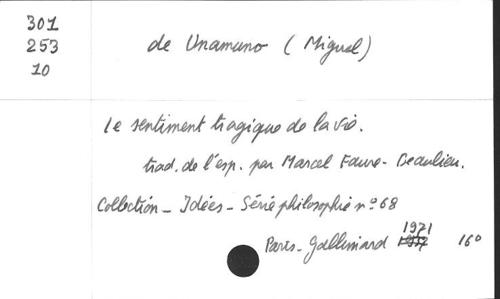 301
253
10
de Unamuno (Miguel)
Le sentiment tragique de la vie.
trad. de l'esp. par Marcel Faure-Beaulieu.
Collection - Idées - Série philosophie n° 68
1971
Paris - Gallimard 16°